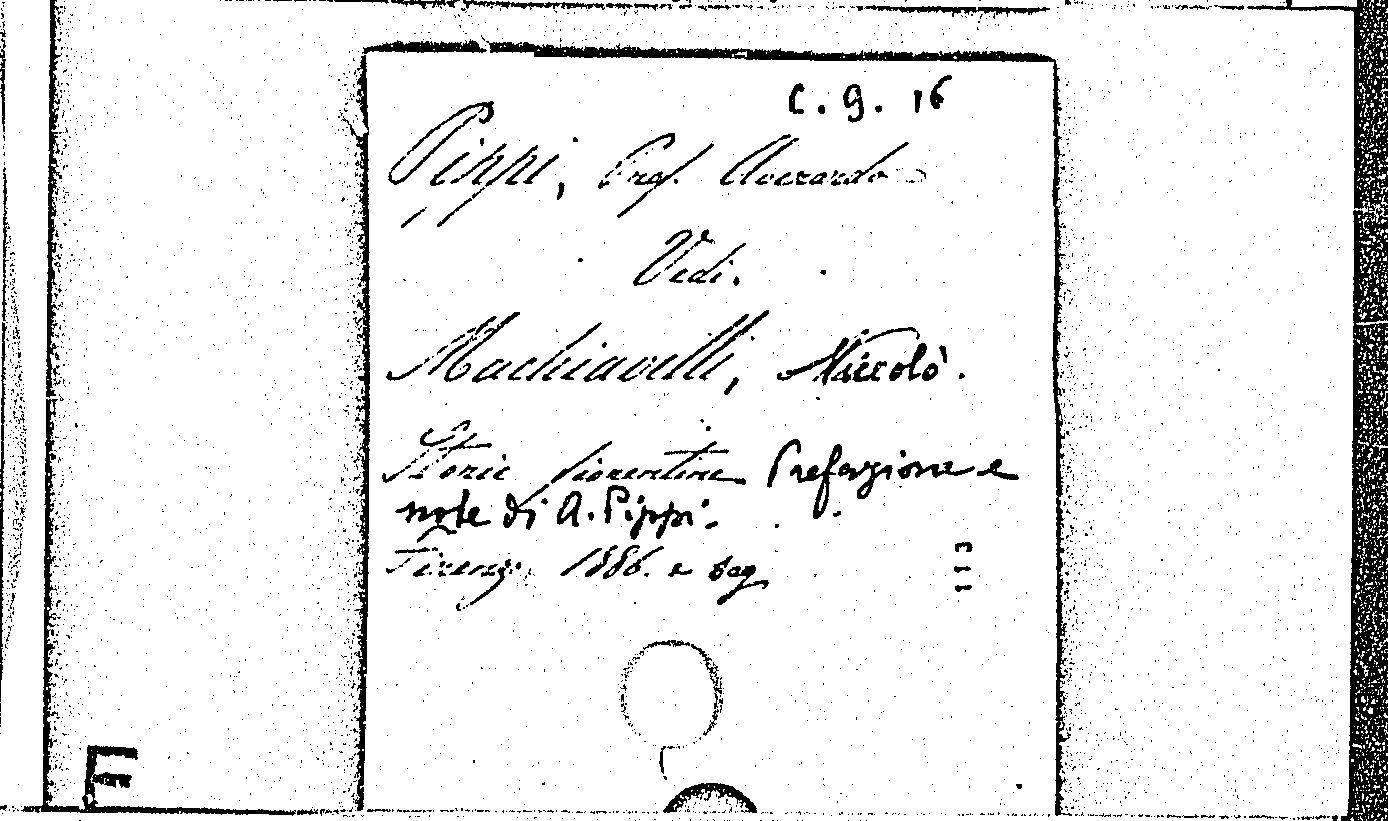 C. 9. 16
Pippi, Prof. Averardo
Vedi.
Machiavelli, Niccolò.
Storie fiorentine Prefazione e
note di A. Pippi.
Firenze 1886. e seg
113